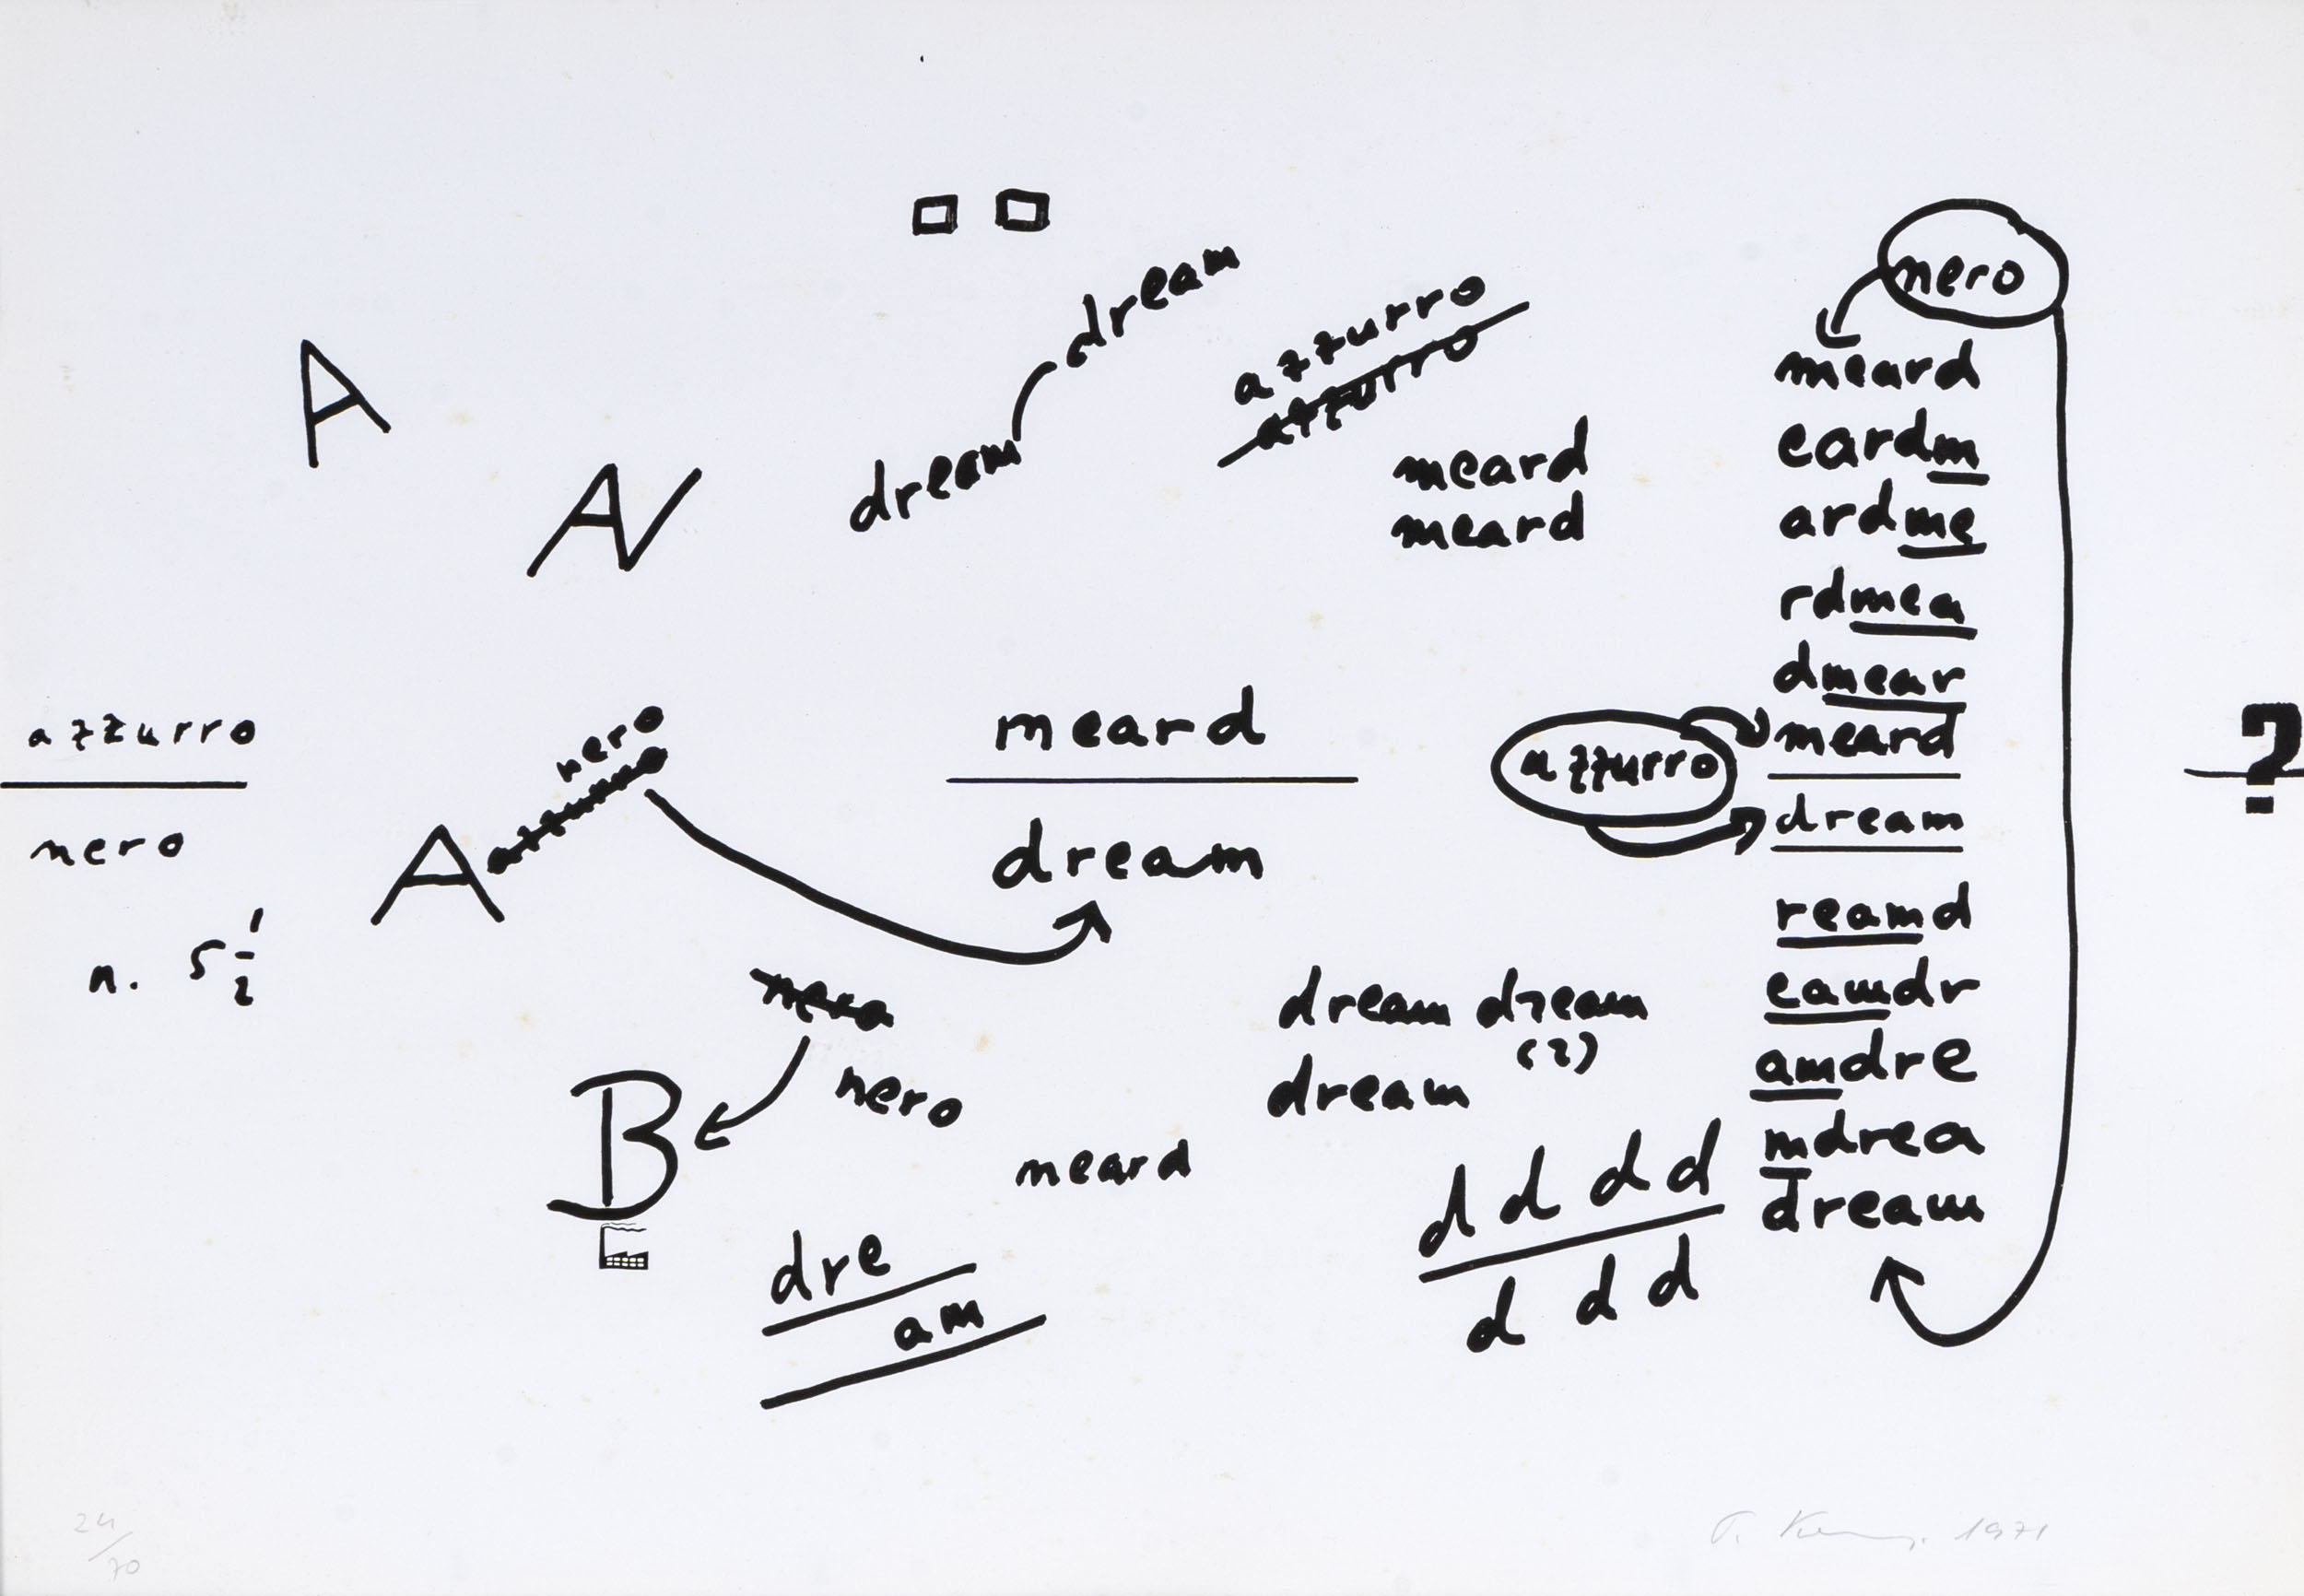 A
AN
dream dream
azzurro
azzurro
meard
meard
azzurro
nero
n. 5 1/2
nero
azzurro
A
nero
nero
B
meard
dream
meard
dre
am
dream dream
(2)
dream
d d d d
d d d
azzurro
nero
meard
eardm
ardme
rdmea
dmear
meard
dream
reamd
eamdr
amdre
mdrea
dream
?
24/70
1971